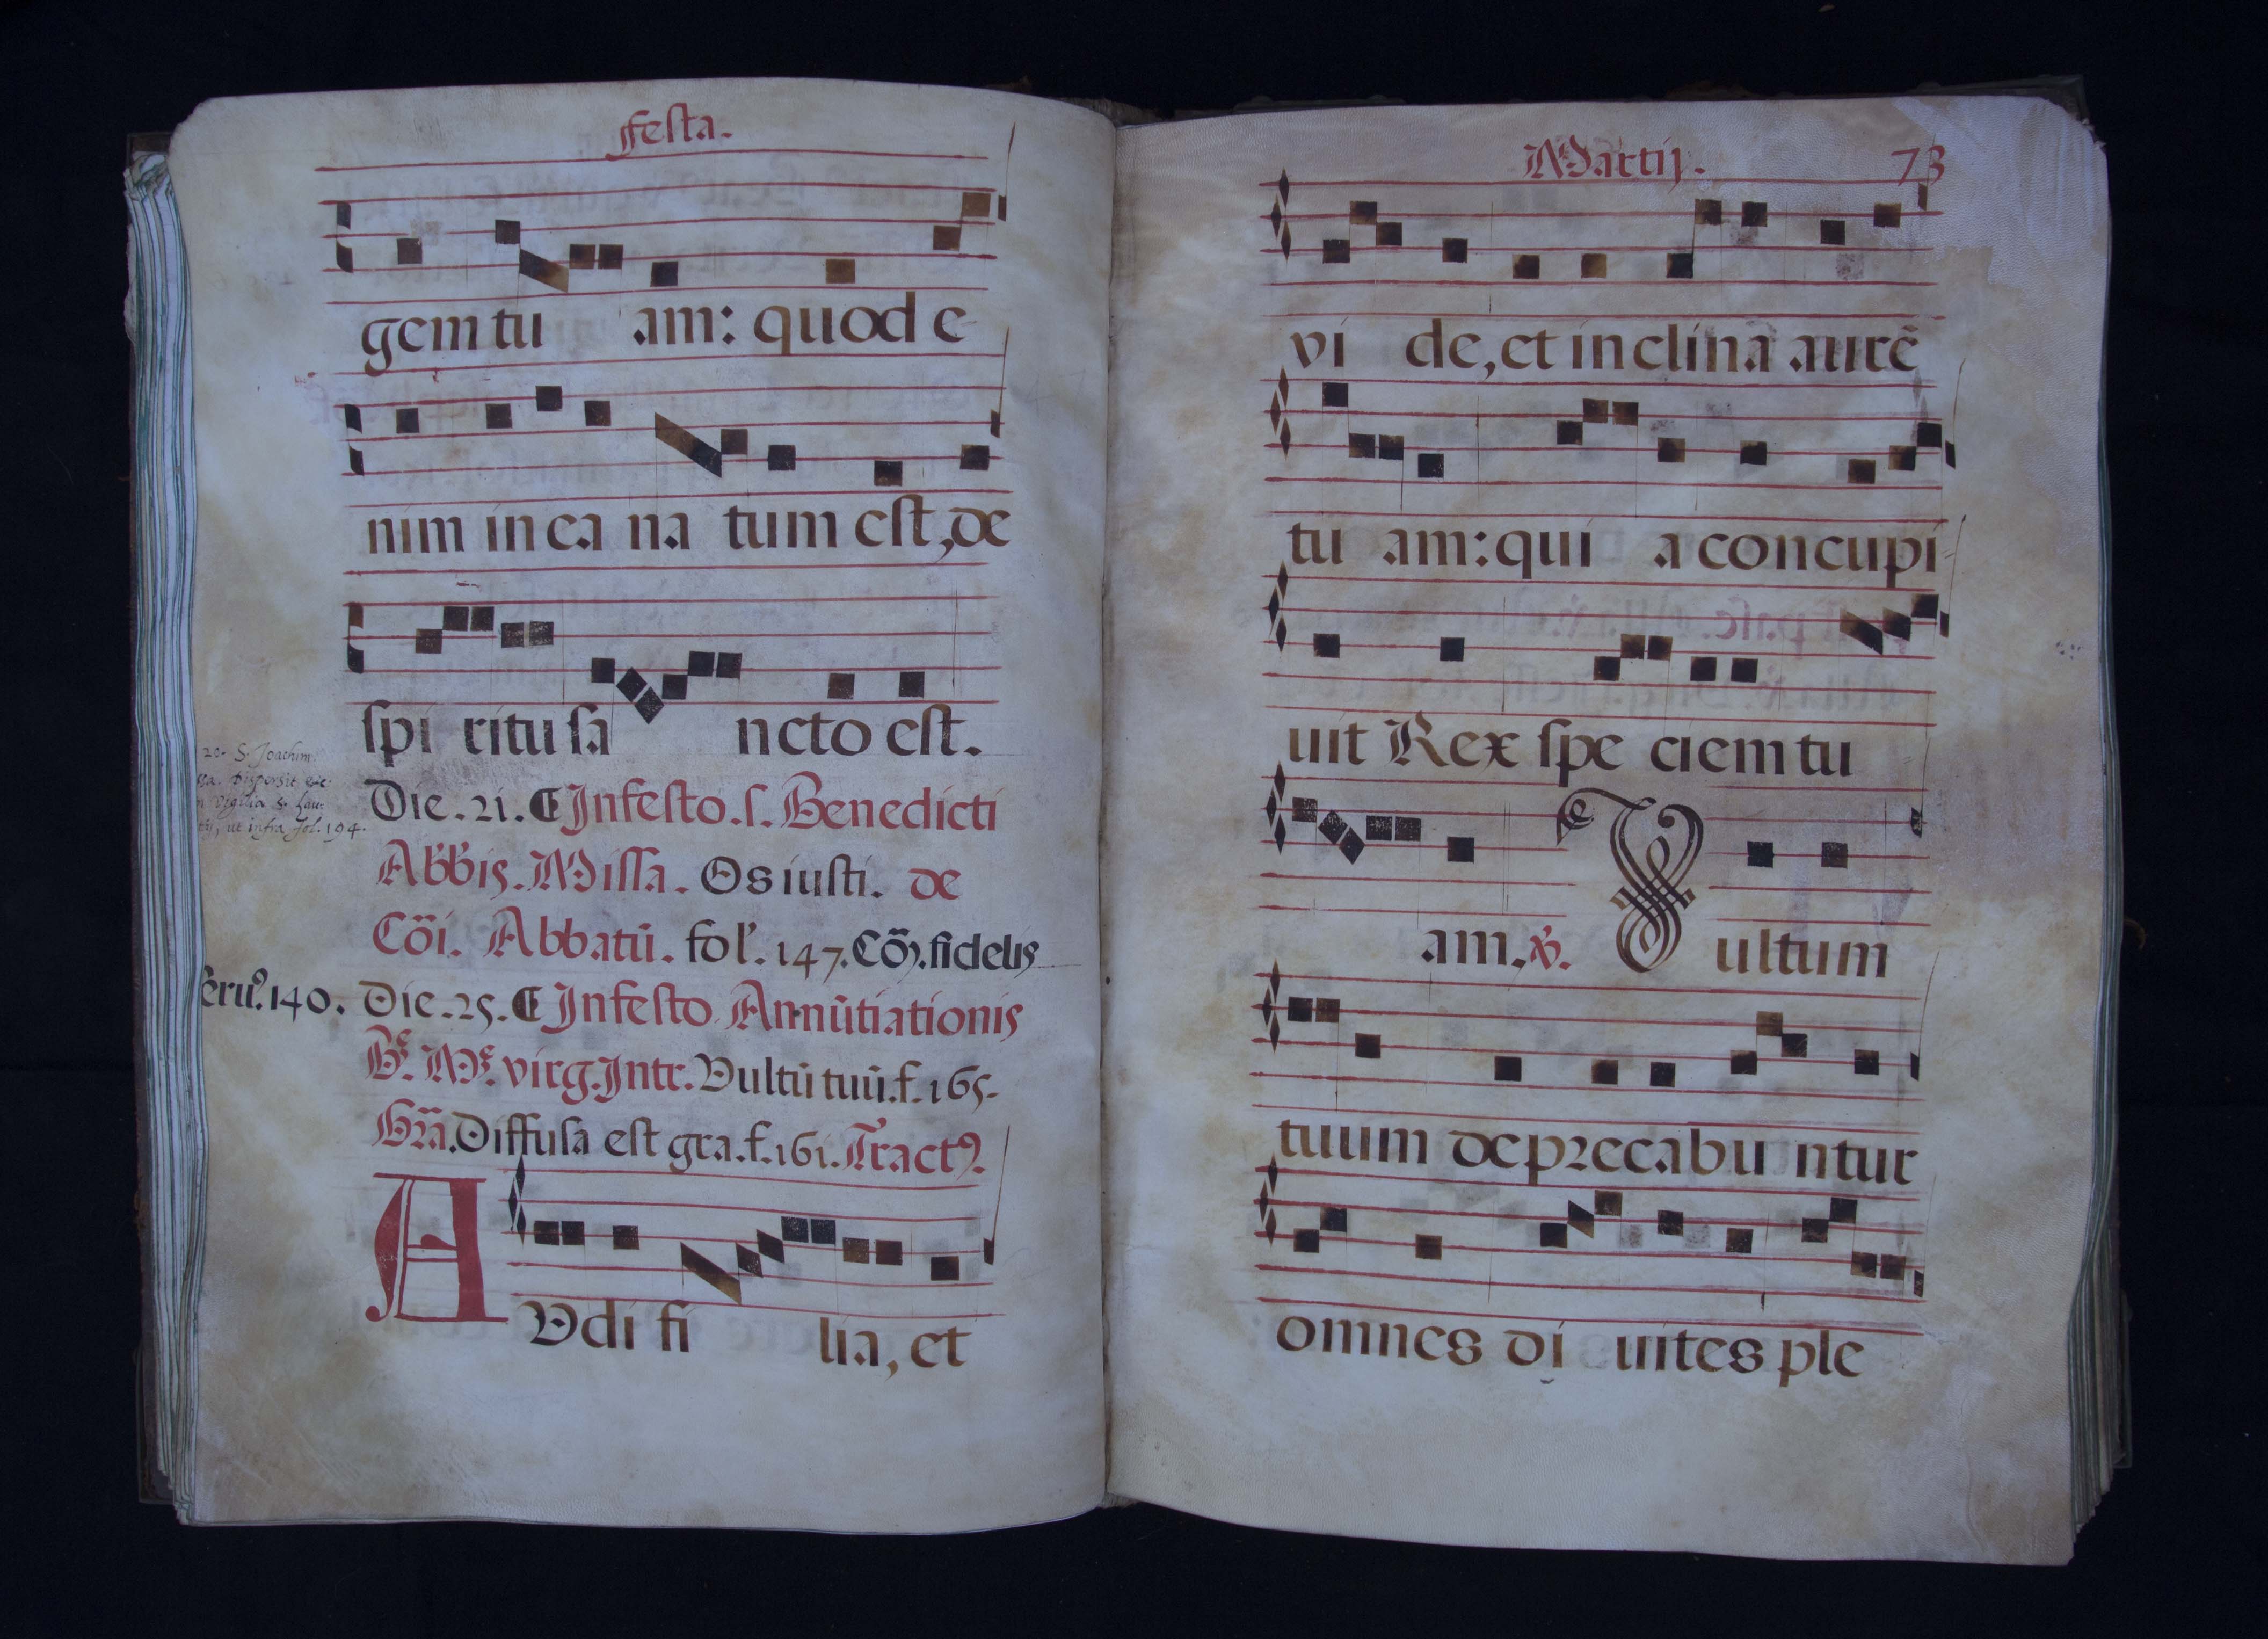 Festa.
gem tu am: quod e
nim in ea na tum est, de
spi ritu sa ncto est.
20. S. Joachim.
Dispersit etc.
Vigilia S. Lau
tij, ut infra fol. 194.
Die. 21. ¶ In festo. s. Benedicti
Abb̄is. Missa. Os iusti. de
Cōi. Abbatū. fol. 147. Cō. fidelis
ʃeru9. 140. Die. 25. ¶ In festo Annūtiationis
Be. Me. virg. Intr. Vultū tuū. f. 165.
Grā. Diffusa est gra. f. 161. Tract9.
AUdi fi lia, et
Martij. 73
vi de, et inclina aurē
tu am: qui a concupi
uit Rex spe ciem tu
am. ℣. Vultum
tuum deprecabu ntur
omnes di uites ple